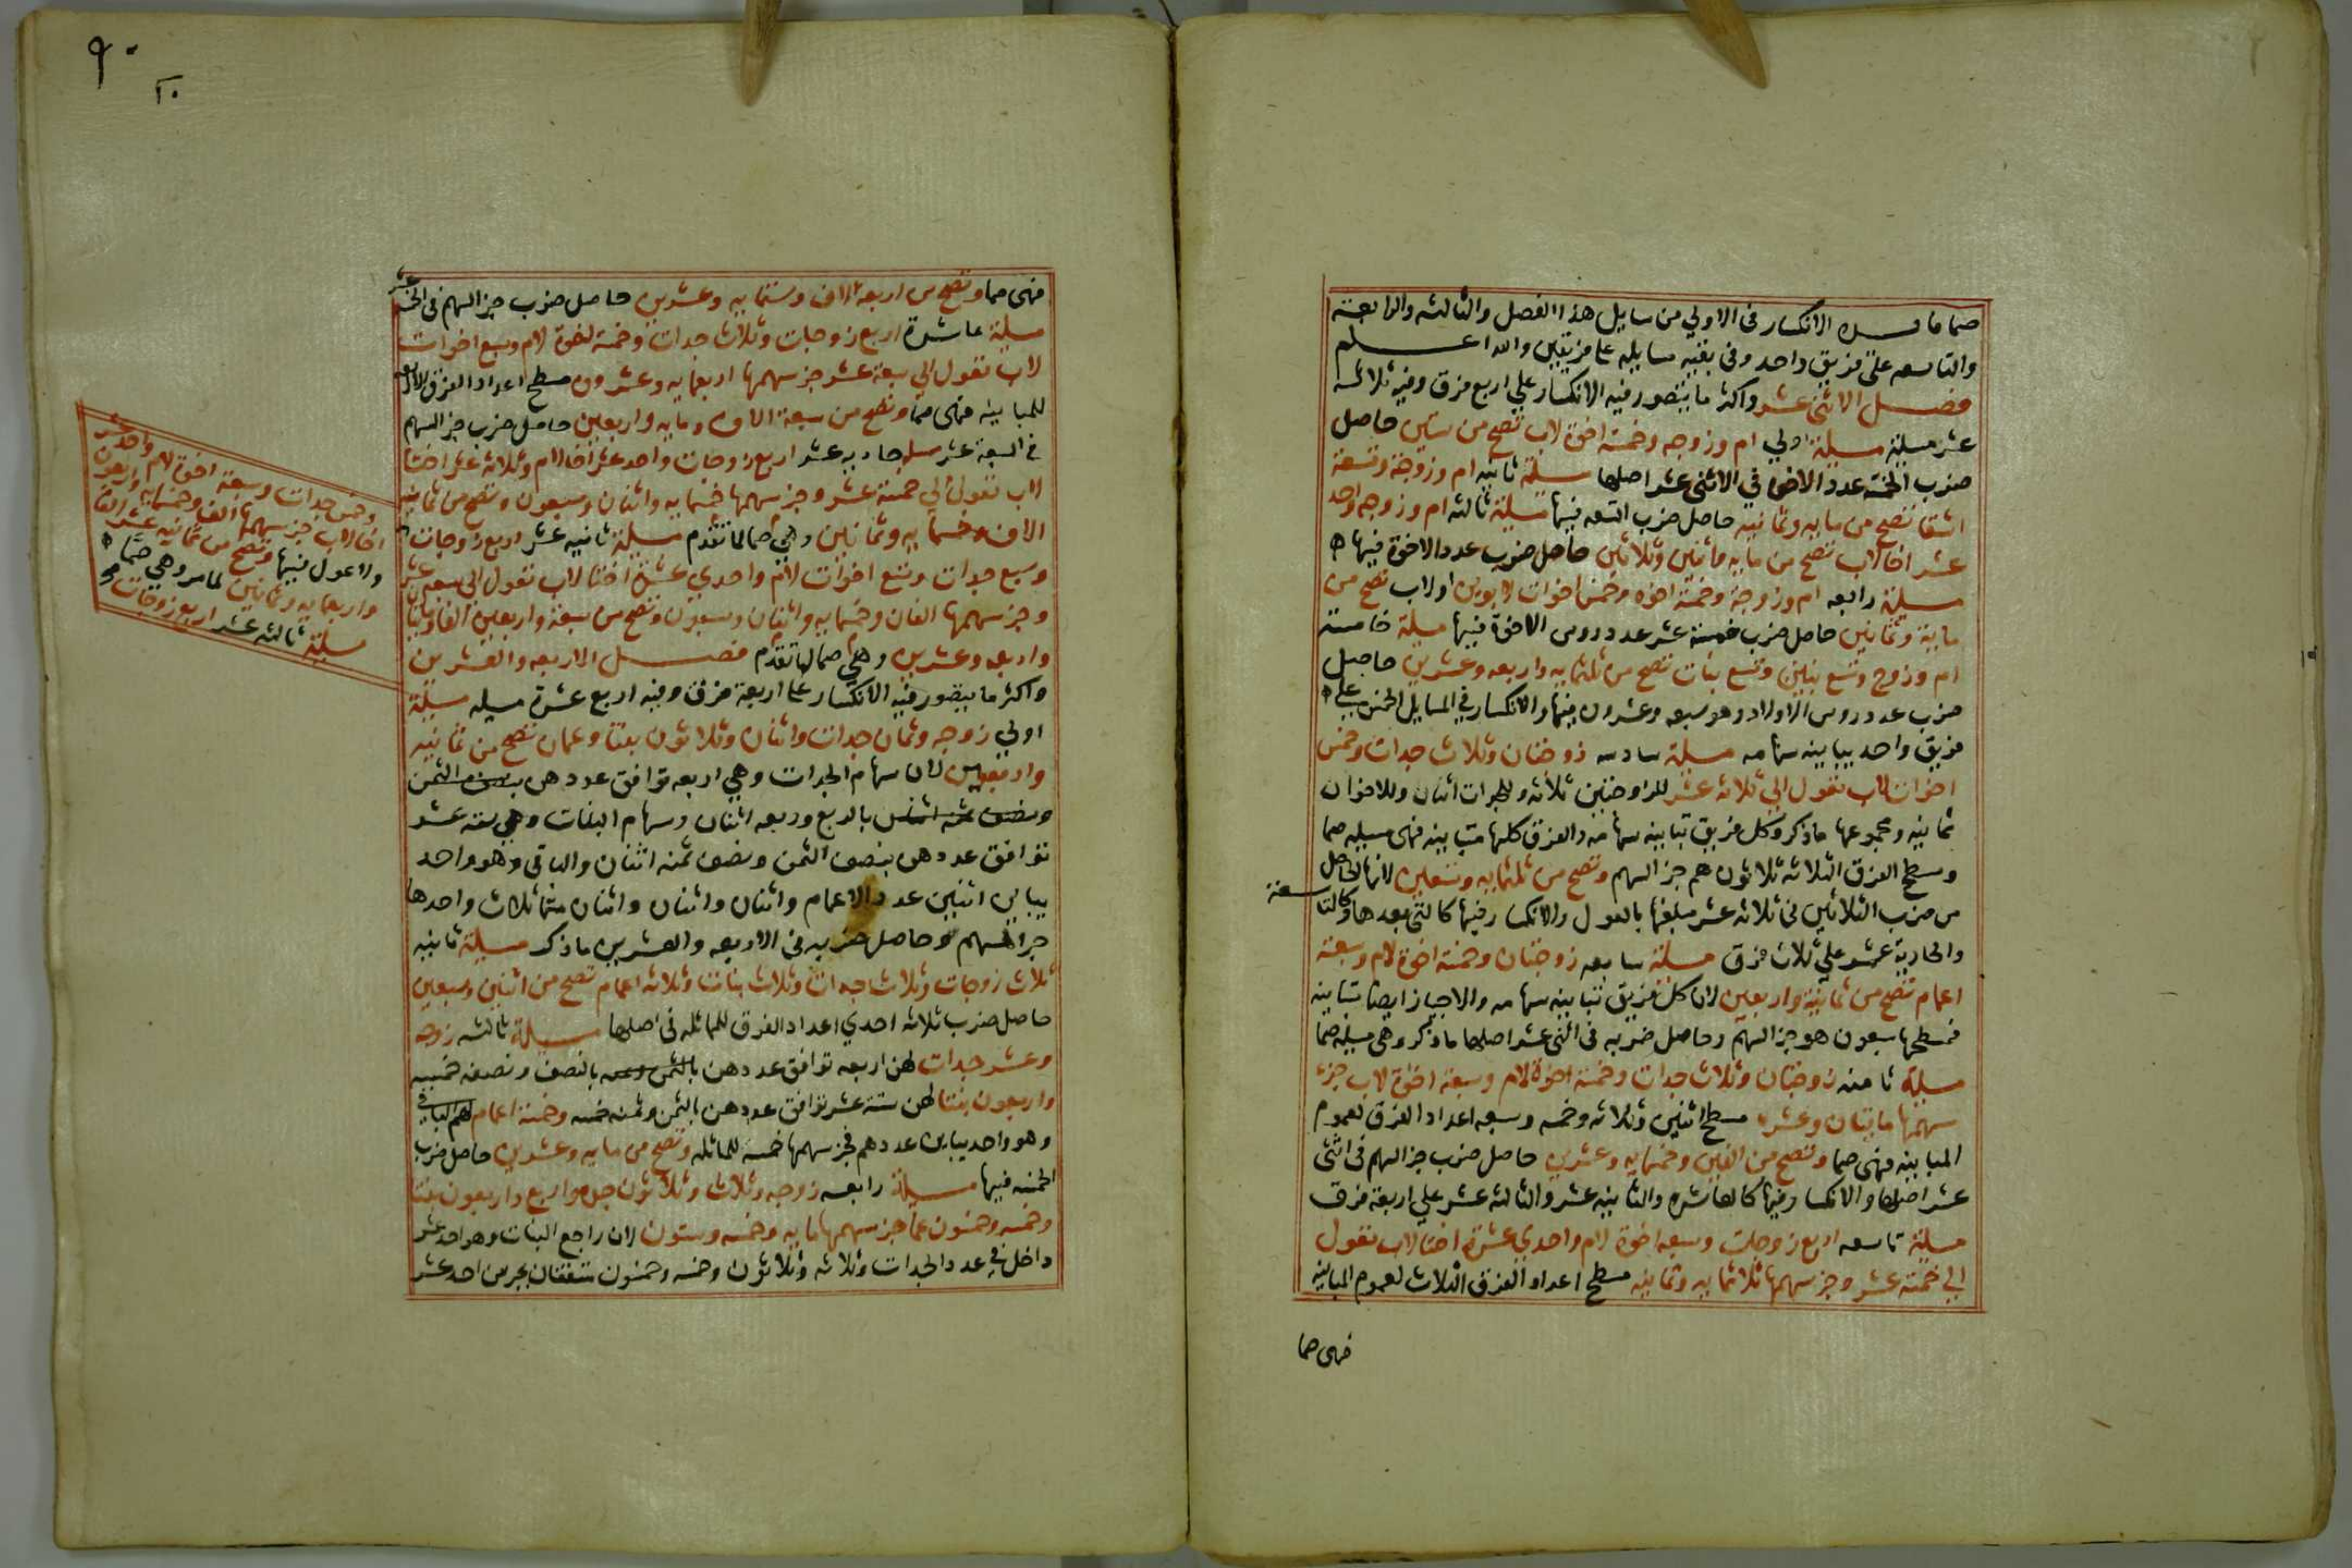 صما فائدة الانكسار في الاولي من مسايل هذا الفصل والثالثه والرابعة
والتاسعه علي فريق واحد وفي بقيه مسايله علي فريقين والله اعلم
فصل الاثني عشر واكثر ما يتصور فيه الانكسار علي اربع فرق وفيه ثلاثة
عشر مسيلة مسيلة اولي ام وزوجه وخمسة اخوة لاب تصح من ستين حاصل
ضرب الخمسه عدد الاخوة في الاثني عشر اصلها مسيلة ثانيه ام وزوجة وتسعة
اشقا تصح من مايه وثمانيه حاصل ضرب التسعه فيها مسيلة ثالثه ام وزوجه واحد
عشر اخا لاب تصح من مايه واثنين وثلاثين حاصل ضرب عدد الاخوة فيها
مسيلة رابعه ام وزوجة وخمسة اخوه وخمس اخوات لابوين او لاب تصح من
ماية وثمانين حاصل ضرب خمسة عشر عدد روس الاخوة فيها مسيلة خامسة
ام وزوج وتسع بنين وتسع بنات تصح من ثلثمايه واربعه وعشرين حاصل
ضرب عدد روس الاولاد وهو سبعه وعشرون فيها والانكسار في المسايل الخمس علي
فريق واحد يباينه سهامه مسيلة سادسه زوجتان وثلاث جدات وخمس
اخوات لاب تعول الي ثلاثه عشر للزوجتين ثلاثه وللجدات اثنان وللاخوات
ثمانيه ومجموعها ماذكر وكل فريق تباينه سهامه والفرق كلها متباينه فهي مسيله صما
ومسطح الفرق الثلاثه ثلاثون هم جز السهم وتصح من ثلثمايه وتسعين لانها الحاصل
من ضرب الثلاثين في ثلاثه عشر مبلغها بالعول والانكسار فيها كالتي بعدها وكالتاسعة
والحادية عشر علي ثلاث فرق مسيلة سابعه زوجتان وخمسة اخوة لام وسبعة
اعمام تصح من ثمانيه واربعين لان كل فريق تباينه سهامه والاحياز ايضا متباينه
فمسطحها سبعون هو جز السهم وحاصل ضربه في اثني عشر اصلها ماذكر وهي مسيله صما
مسيلة ثامنه زوجتان وثلاث جدات وخمسة اخوة لام وسبعة اخوة لاب جزء
سهمها مايتان وعشره مسطح اثنين وثلاثه وخمسه وسبعه اعداد الفرق لعموم
المباينه فهي صما وتصح من الفين وخمسمايه وعشرين حاصل ضرب جز السهم في اثني
عشر اصلها والانكسار فيها كالعاشره والثانيه عشر والثالثه عشر علي اربعة فرق
مسيلة تاسعه اربع زوجات وسبعه اخوة لام واحدي عشرة اختا لاب تعول
الي خمسة عشر وجز سهمها ثلاثمايه وثمانيه مسطح اعداد الفرق الثلاث لعموم المباينه
فهي صما
٩٠
٢٠
فهي صما وتصح من اربعة الاف وستمايه وعشرين حاصل ضرب جز السهم في الخمسة عشر
مسيلة عاشرة اربع زوجات وثلاث جدات وخمسة اخوة لام وسبع اخوات
لاب تعول الي سبعة عشر جز سهمها اربعمايه وعشرون مسطح اعداد الفرق الاربعه
للمباينه فهي صما وتصح من سبعة الاف ومايه واربعين حاصل ضرب جز السهم
في السبعه عشر مسيلة حاديه عشر اربع زوجات واحد عشر اخا لام وثلاثه عشر اختا
لاب تعول الي خمسة عشر وجز سهمها خمسمايه واثنان وسبعون وتصح من ثمانيه
الاف وخمسمايه وثمانين وهي صما لما تقدم مسيلة ثانيه عشر اربع زوجات
وسبع جدات وتسع اخوات لام واحدي عشرة اختا لاب تعول الي سبعه عشر
وجز سهمها الفان وخمسمايه واثنان وسبعون وتصح من سبعة واربعين الفا وسبعمائة
واربعه وعشرين وهي صما لما تقدم فصل الاربعه والعشرين
واكثر ما يتصور فيه الانكسار علي اربعة فرق وفيه اربع عشرة مسيله مسيلة
اولي زوجه وثمان جدات واثنان وثلاثون بنتا وعمان تصح من ثمانيه
واربعين لان سهام الجدات وهي اربعه توافق عددهن
بالربع وربعه اثنان وسهام البنات وهي سته عشر
توافق عددهن بنصف الثمن ونصف ثمنه اثنان والباقي وهو واحد
يباين اثنين عدد الاعمام واثنان واثنان واثنان متماثلات واحدها
جز السهم وحاصل ضربه في الاربعه والعشرين ماذكر مسيلة ثانيه
ثلاث زوجات وثلاث جدات وثلاث بنات وثلاثه اعمام تصح من اثنين وسبعين
حاصل ضرب ثلاثه احدي اعداد الفرق للمماثله في اصلها مسيلة ثالثه زوجه
وعشر جدات لهن اربعه توافق عددهن بالنصف ونصفه خمسه
واربعون بنتا لهن ستة عشر توافق عددهن بالثمن وثمنه خمسه وخمسة اعمام لهم الباقي
وهو واحد يباين عددهم فجز سهمها خمسه للماثله وتصح من مايه وعشرين حاصل ضرب
الخمسه فيها مسيلة رابعه زوجه وثلاث وثلاثون جده واربع واربعون بنتا
وخمسه وخمسون عما جز سهمها مايه وخمسه وستون لان راجع البنات وهو احد عشر
داخل في عدد الجدات وثلاثه وثلاثون وخمسه وخمسون متفقان بجز من احد عشر
وخمس جدات وسبعة اخوة لام واحد عشر
اخا لاب جز سهمها الف وخمسمايه واربعون
ولا عول فيها وتصح من ثمانيه عشر الفا
واربعمايه وثمانين لما مر وهي صما
مسيلة ثالثه عشر اربع زوجات